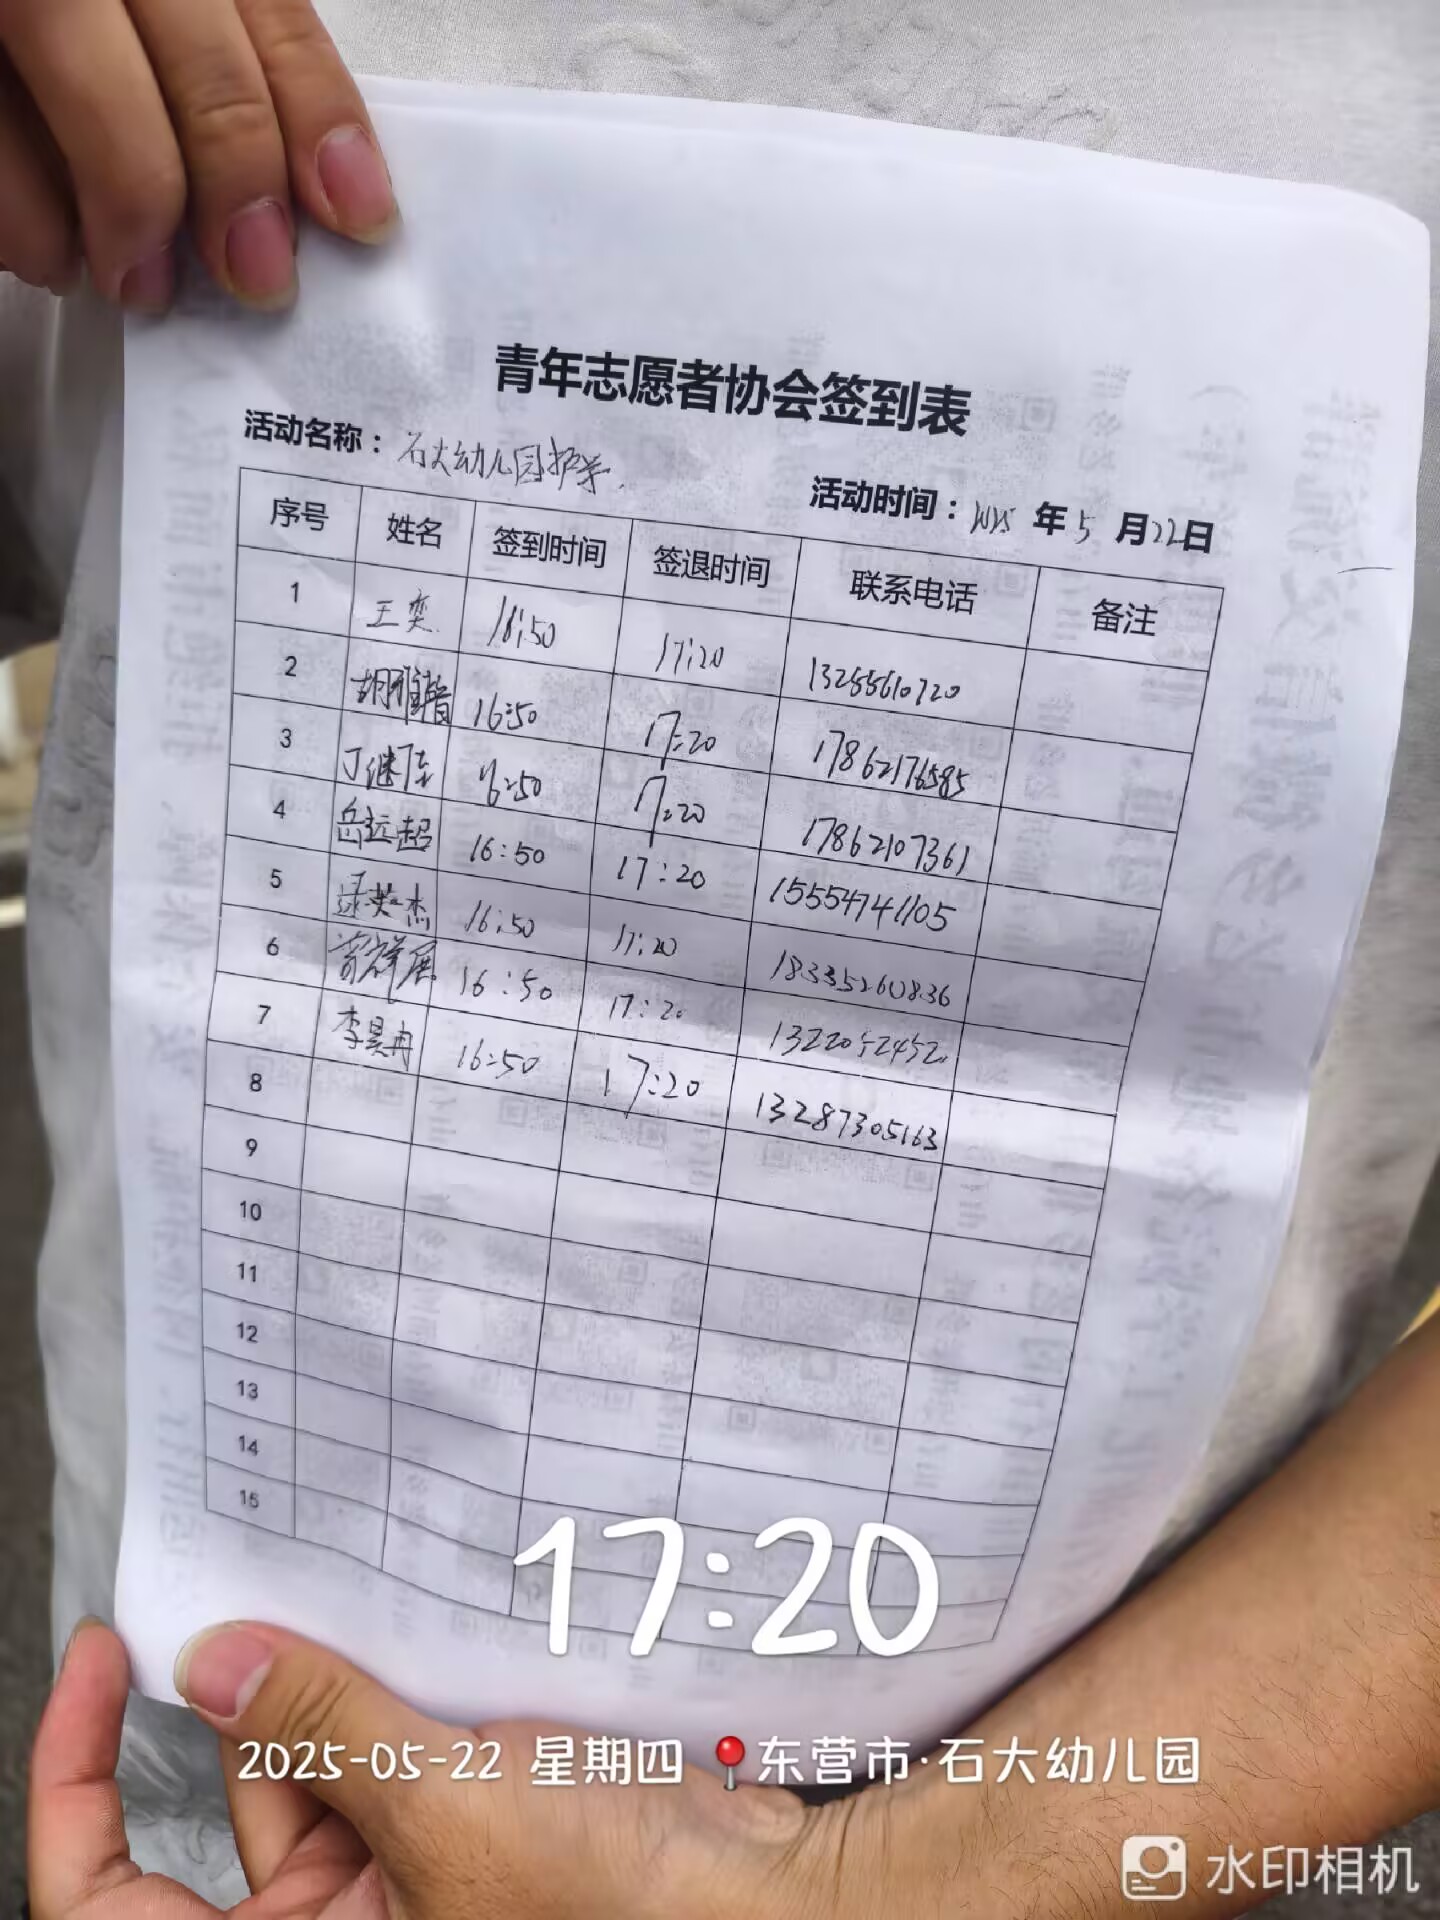 青年志愿者协会签到表
活动名称：石大幼儿园护学.
活动时间：2025 年 5 月 22 日
序号 姓名 签到时间 签退时间 联系电话 备注
1 王奕 16:50 17:20 13255610720
2 16:50 17:20 17862176585
3 丁继 16:50 17:20 17862107361
4 岳远超 16:50 17:20 15554741105
5 英杰 16:50 17:20 18335260836
6 祥展 16:50 17:20
7 李昊冉 16:50 17:20 13287305163
8
9
10
11
12
13
14
15
17:20
2025-05-22 星期四 东营市·石大幼儿园
水印相机